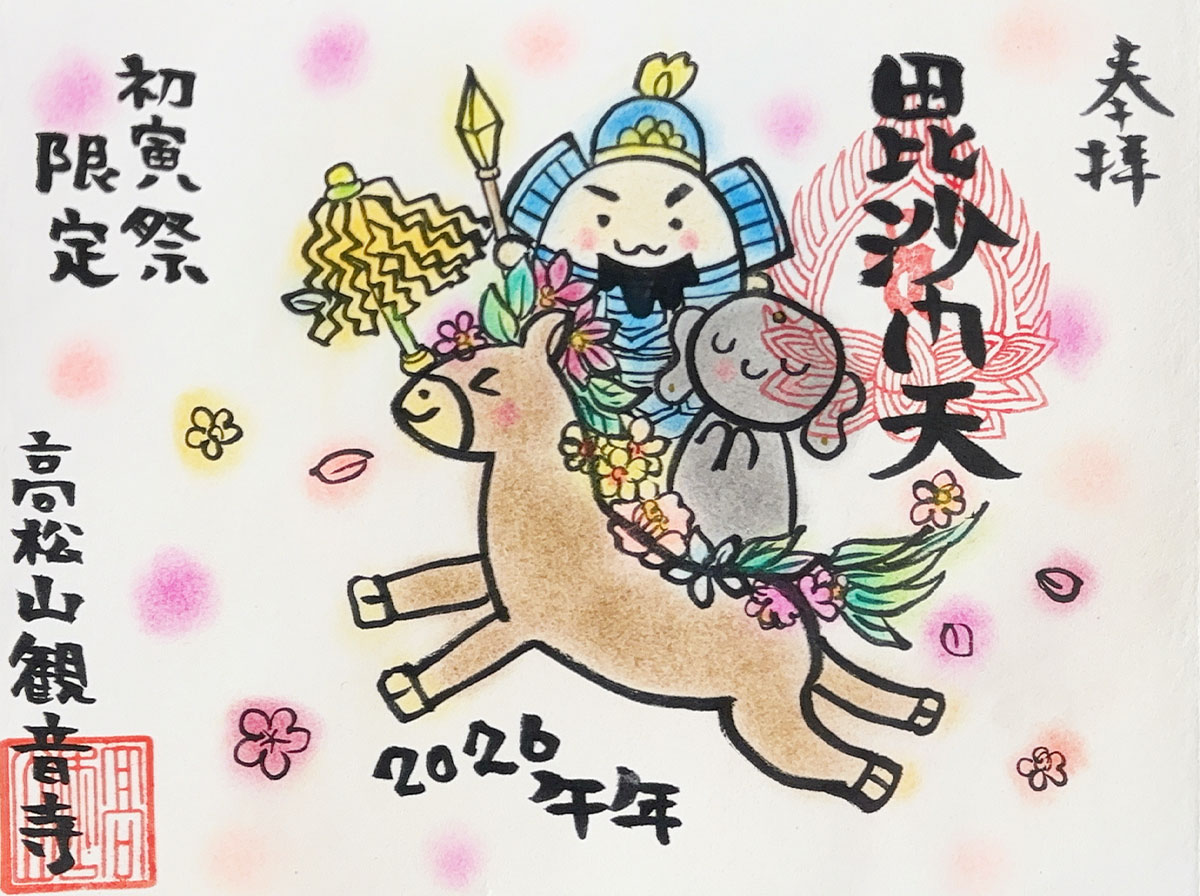 奉拝
毘沙門天
初寅祭
限定
2026
午年
高松山観音寺